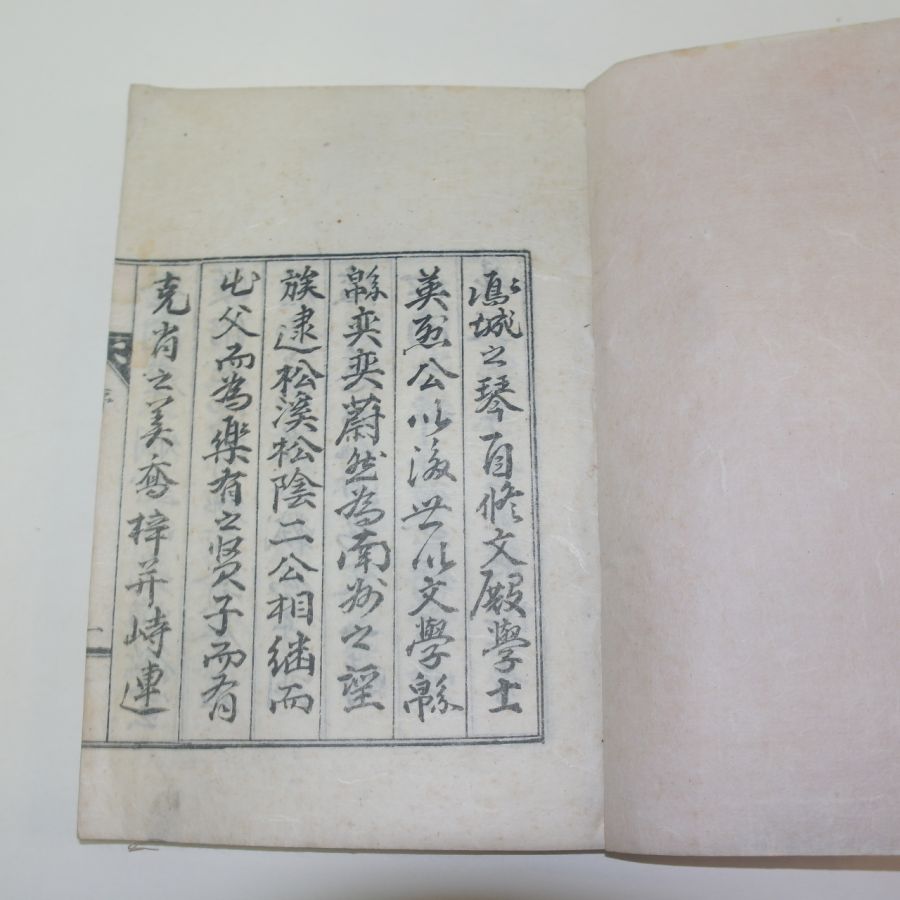 鳳城之琴自修文殿學士
英烈公以後世以文學緜
緜奕奕蔚然為南州之望
族逮松溪松陰二公相繼而
出父而為樂有之賢子而有
克肖之美喬梓并峙連